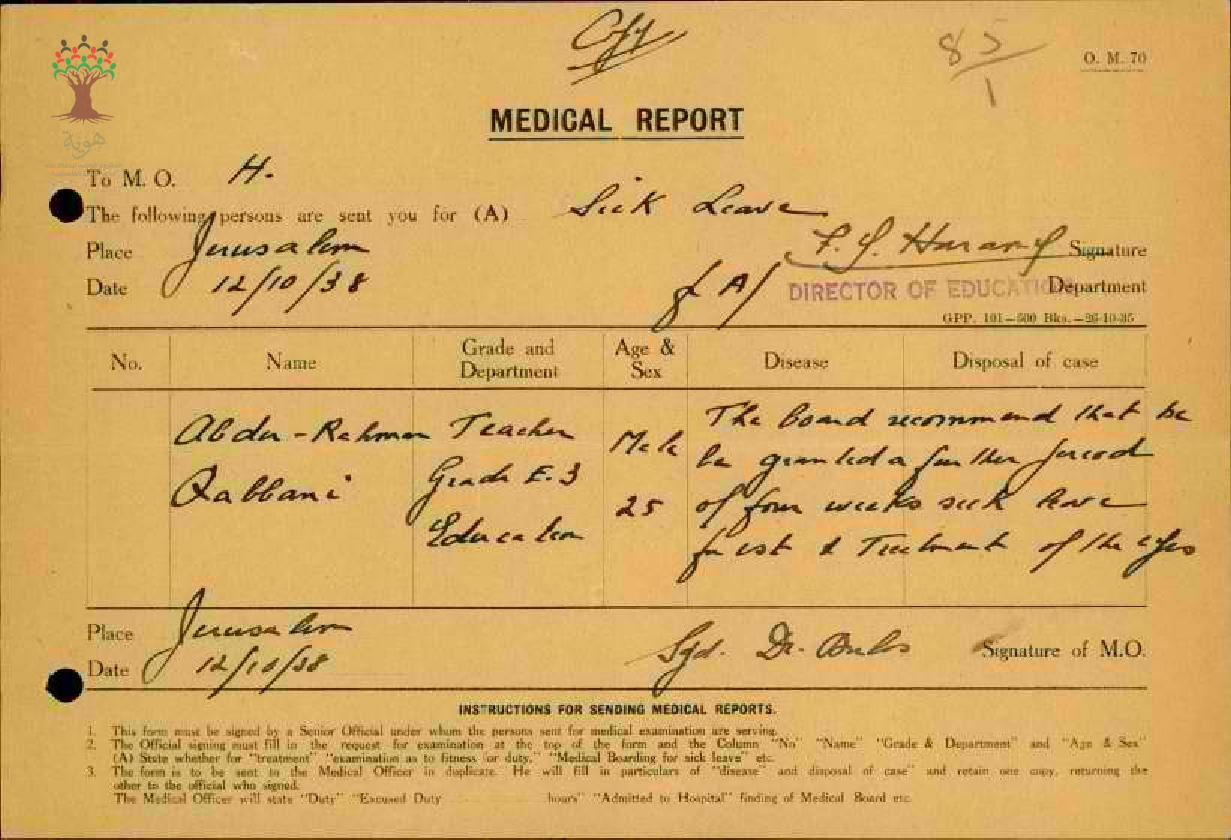 Copy
85/1
O. M. 70
هوية
MEDICAL REPORT
To M. O. H.
The following persons are sent you for (A) Sick Leave
Place Jerusalem
Signature
Date 12/10/38
DIRECTOR OF EDUCATION Department
GPP. 101—500 Bks.—26-10-35
No. Name Grade and Department Age & Sex Disease Disposal of case
Abdur-Rahman Teacher Male The board recommend that he
Qabbani Grade E.3 25 be granted a further period
Education of four weeks sick leave
for rest & Treatment of the eyes
Place Jerusalem
Sgd. Dr. Signature of M.O.
Date 12/10/38
INSTRUCTIONS FOR SENDING MEDICAL REPORTS.
1. This form must be signed by a Senior Official under whom the persons sent for medical examination are serving.
2. The Official signing must fill in the request for examination at the top of the form and the Column "No" "Name" "Grade & Department" and "Age & Sex"
(A) State whether for "treatment" "examination as to fitness for duty," "Medical Boarding for sick leave" etc.
3. The form is to be sent to the Medical Officer in duplicate. He will fill in particulars of "disease" and disposal of case" and retain one copy, returning the
other to the official who signed.
The Medical Officer will state "Duty" "Excused Duty hours" "Admitted to Hospital" finding of Medical Board etc.